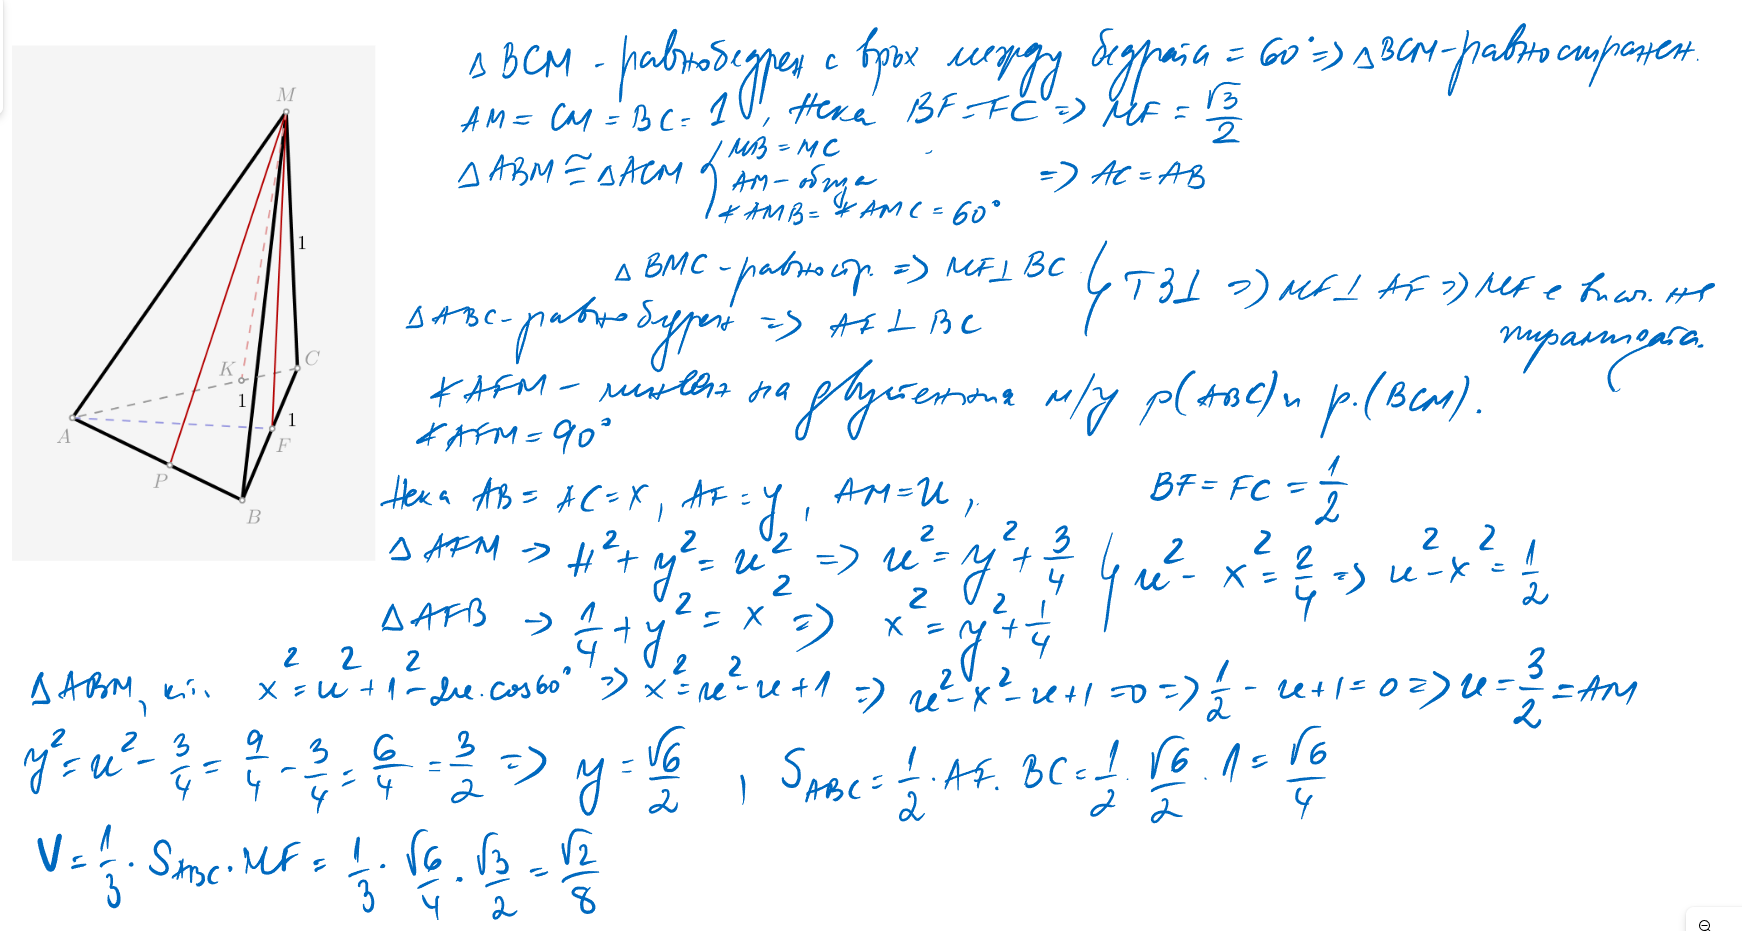 Δ BCM - равнобедрен с връх между бедрата = 60° => Δ BCM - равностранен.
AM = CM = BC = 1, Нека BF = FC => MF = √3/2
Δ ABM ≅ Δ ACM { MB = MC
AM - обща
∢ AMB = ∢ AMC = 60°
=> AC = AB
Δ BMC - равностр. => MF ⊥ BC
Δ ABC - равнобедрен => AF ⊥ BC
} ТЗ⊥ => MF ⊥ AF => MF е вис. на
пирамидата.
∢ AFM - линеен на двустенния м/у p(ABC) и p.(BCM).
∢ AFM = 90°
Нека AB = AC = x, AF = y, AM = u, BF = FC = 1/2
Δ AFM -> H² + y² = u² => u² = y² + 3/4
Δ AFB -> 1/4 + y² = x² => x² = y² + 1/4
} u² - x² = 2/4 => u² - x² = 1/2
Δ ABM, x² = u² + 1² - 2u.cos60° => x² = u² - u + 1 => u² - x² - u + 1 = 0 => 1/2 - u + 1 = 0 => u = 3/2 = AM
y² = u² - 3/4 = 9/4 - 3/4 = 6/4 = 3/2 => y = √6/2 , S_ABC = 1/2 . AF . BC = 1/2 . √6/2 . 1 = √6/4
V = 1/3 . S_ABC . MF = 1/3 . √6/4 . √3/2 = √2/8
M
1
K
C
1
1
A
F
P
B